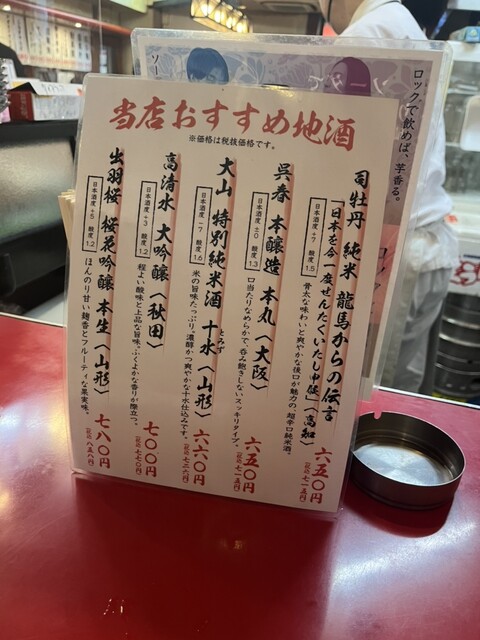 当店おすすめ地酒
※価格は税抜価格です。
司牡丹 純米 龍馬からの伝言
「日本を今一度せんたくいたし申候」〈高知〉
日本酒度 +7 酸度 1.5
骨太な味わいと爽やかな後口が魅力の、超辛口純米酒。
六五〇円
(税込 七一五円)
呉春 本醸造 本丸〈大阪〉
日本酒度 ±0 酸度 1.3
口当たりなめらかで、呑み飽きしないスッキリタイプ。
六五〇円
(税込 七一五円)
大山 特別純米酒 十水〈山形〉
とみず
日本酒度 −7 酸度 1.6
米の旨味たっぷり。濃醇かつ爽やかな十水仕込みです。
六六〇円
(税込 七二六円)
高清水 大吟醸〈秋田〉
日本酒度 +3 酸度 1.2
程よい酸味と上品な旨味、ふくよかな香りが際立つ。
七〇〇円
(税込 七七〇円)
出羽桜 桜花吟醸 本生〈山形〉
日本酒度 +5 酸度 1.2
ほんのり甘い麹香とフルーティな果実味。
七八〇円
(税込 八五八円)
ロックで飲めば、芋香る。
ソー